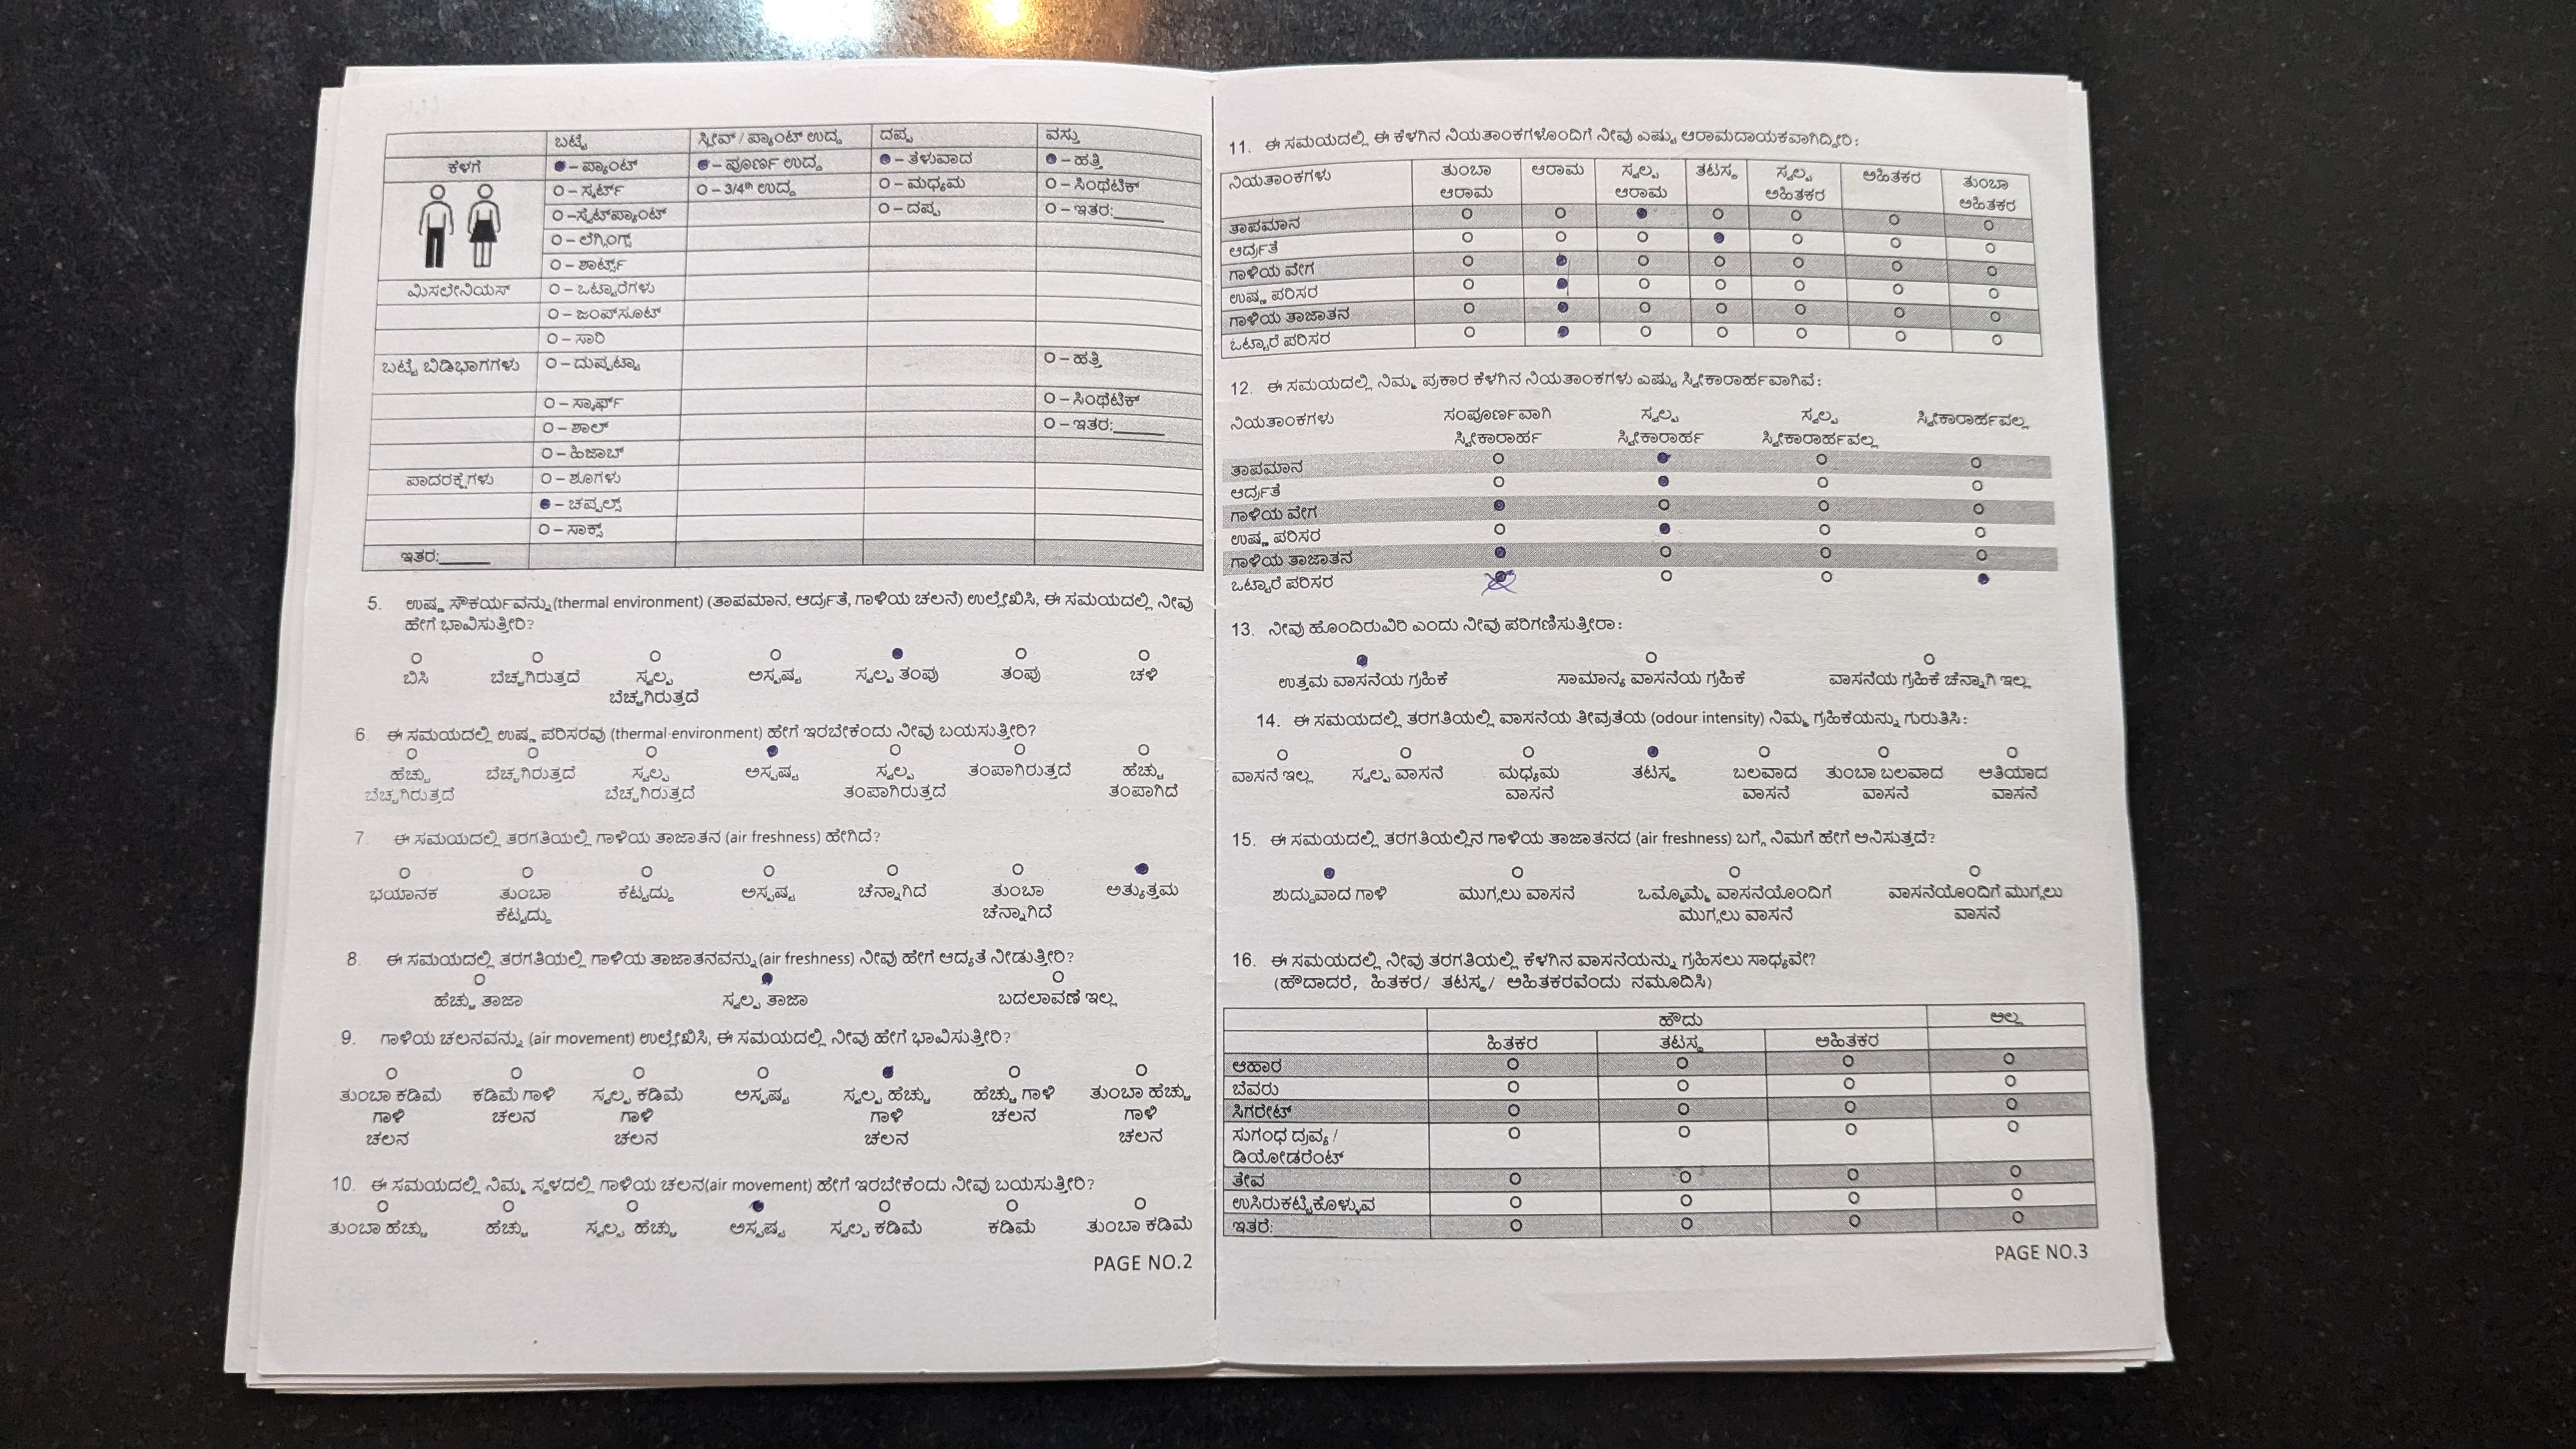 ಬಟ್ಟೆ ಸ್ಲೀವ್ / ಪ್ಯಾಂಟ್ ಉದ್ದ ದಪ್ಪ ವಸ್ತು
ಕೆಳಗೆ O – ಪ್ಯಾಂಟ್ O – ಪೂರ್ಣ ಉದ್ದ O – ತೆಳುವಾದ O – ಹತ್ತಿ
O – ಸ್ಕರ್ಟ್ O – 3/4th ಉದ್ದ O – ಮಧ್ಯಮ O – ಸಿಂಥೆಟಿಕ್
O –ಸ್ವೆಟ್‌ಪ್ಯಾಂಟ್ O – ದಪ್ಪ O – ಇತರ:______
O – ಲೆಗ್ಗಿಂಗ್ಸ್
O – ಶಾರ್ಟ್ಸ್
ಮಿಸಲೇನಿಯಸ್ O – ಒಟ್ಟಾರೆಗಳು
O – ಜಂಪ್‌ಸೂಟ್
O – ಸಾರಿ
ಬಟ್ಟೆ ಬಿಡಿಭಾಗಗಳು O – ದುಪ್ಪಟ್ಟಾ O – ಹತ್ತಿ
O – ಸ್ಕಾರ್ಫ್ O – ಸಿಂಥೆಟಿಕ್
O – ಶಾಲ್ O – ಇತರ:______
O – ಹಿಜಾಬ್
ಪಾದರಕ್ಷೆಗಳು O – ಶೂಗಳು
O – ಚಪ್ಪಲ್ಸ್
O – ಸಾಕ್ಸ್
ಇತರ:______
5. ಉಷ್ಣ ಸೌಕರ್ಯವನ್ನು (thermal environment) (ತಾಪಮಾನ, ಆರ್ದ್ರತೆ, ಗಾಳಿಯ ಚಲನೆ) ಉಲ್ಲೇಖಿಸಿ, ಈ ಸಮಯದಲ್ಲಿ ನೀವು
ಹೇಗೆ ಭಾವಿಸುತ್ತೀರಿ?
ಬಿಸಿ ಬೆಚ್ಚಗಿರುತ್ತದೆ ಸ್ವಲ್ಪ ಅಸ್ಪಷ್ಟ ಸ್ವಲ್ಪ ತಂಪು ತಂಪು ಚಳಿ
ಬೆಚ್ಚಗಿರುತ್ತದೆ
6. ಈ ಸಮಯದಲ್ಲಿ ಉಷ್ಣ ಪರಿಸರವು (thermal environment) ಹೇಗೆ ಇರಬೇಕೆಂದು ನೀವು ಬಯಸುತ್ತೀರಿ?
ಹೆಚ್ಚು ಬೆಚ್ಚಗಿರುತ್ತದೆ ಸ್ವಲ್ಪ ಅಸ್ಪಷ್ಟ ಸ್ವಲ್ಪ ತಂಪಾಗಿರುತ್ತದೆ ಹೆಚ್ಚು
ಬೆಚ್ಚಗಿರುತ್ತದೆ ಬೆಚ್ಚಗಿರುತ್ತದೆ ತಂಪಾಗಿರುತ್ತದೆ ತಂಪಾಗಿದೆ
7. ಈ ಸಮಯದಲ್ಲಿ ತರಗತಿಯಲ್ಲಿ ಗಾಳಿಯ ತಾಜಾತನ (air freshness) ಹೇಗಿದೆ?
ಭಯಾನಕ ತುಂಬಾ ಕೆಟ್ಟದ್ದು ಅಸ್ಪಷ್ಟ ಚೆನ್ನಾಗಿದೆ ತುಂಬಾ ಅತ್ಯುತ್ತಮ
ಕೆಟ್ಟದ್ದು ಚೆನ್ನಾಗಿದೆ
8. ಈ ಸಮಯದಲ್ಲಿ ತರಗತಿಯಲ್ಲಿ ಗಾಳಿಯ ತಾಜಾತನವನ್ನು (air freshness) ನೀವು ಹೇಗೆ ಆದ್ಯತೆ ನೀಡುತ್ತೀರಿ?
ಹೆಚ್ಚು ತಾಜಾ ಸ್ವಲ್ಪ ತಾಜಾ ಬದಲಾವಣೆ ಇಲ್ಲ
9. ಗಾಳಿಯ ಚಲನವನ್ನು (air movement) ಉಲ್ಲೇಖಿಸಿ, ಈ ಸಮಯದಲ್ಲಿ ನೀವು ಹೇಗೆ ಭಾವಿಸುತ್ತೀರಿ?
ತುಂಬಾ ಕಡಿಮೆ ಕಡಿಮೆ ಗಾಳಿ ಸ್ವಲ್ಪ ಕಡಿಮೆ ಅಸ್ಪಷ್ಟ ಸ್ವಲ್ಪ ಹೆಚ್ಚು ಹೆಚ್ಚು ಗಾಳಿ ತುಂಬಾ ಹೆಚ್ಚು
ಗಾಳಿ ಚಲನ ಗಾಳಿ ಗಾಳಿ ಚಲನ ಗಾಳಿ
ಚಲನ ಚಲನ ಚಲನ ಚಲನ
10. ಈ ಸಮಯದಲ್ಲಿ ನಿಮ್ಮ ಸ್ಥಳದಲ್ಲಿ ಗಾಳಿಯ ಚಲನ(air movement) ಹೇಗೆ ಇರಬೇಕೆಂದು ನೀವು ಬಯಸುತ್ತೀರಿ?
ತುಂಬಾ ಹೆಚ್ಚು ಹೆಚ್ಚು ಸ್ವಲ್ಪ ಹೆಚ್ಚು ಅಸ್ಪಷ್ಟ ಸ್ವಲ್ಪ ಕಡಿಮೆ ಕಡಿಮೆ ತುಂಬಾ ಕಡಿಮೆ
PAGE NO.2
11. ಈ ಸಮಯದಲ್ಲಿ ಈ ಕೆಳಗಿನ ನಿಯತಾಂಕಗಳೊಂದಿಗೆ ನೀವು ಎಷ್ಟು ಆರಾಮದಾಯಕವಾಗಿದ್ದೀರಿ:
ನಿಯತಾಂಕಗಳು ತುಂಬಾ ಆರಾಮ ಸ್ವಲ್ಪ ತಟಸ್ಥ ಸ್ವಲ್ಪ ಅಹಿತಕರ ತುಂಬಾ
ಆರಾಮ ಆರಾಮ ಅಹಿತಕರ ಅಹಿತಕರ
ತಾಪಮಾನ
ಆರ್ದ್ರತೆ
ಗಾಳಿಯ ವೇಗ
ಉಷ್ಣ ಪರಿಸರ
ಗಾಳಿಯ ತಾಜಾತನ
ಒಟ್ಟಾರೆ ಪರಿಸರ
12. ಈ ಸಮಯದಲ್ಲಿ ನಿಮ್ಮ ಪ್ರಕಾರ ಕೆಳಗಿನ ನಿಯತಾಂಕಗಳು ಎಷ್ಟು ಸ್ವೀಕಾರಾರ್ಹವಾಗಿವೆ:
ನಿಯತಾಂಕಗಳು ಸಂಪೂರ್ಣವಾಗಿ ಸ್ವಲ್ಪ ಸ್ವಲ್ಪ ಸ್ವೀಕಾರಾರ್ಹವಲ್ಲ
ಸ್ವೀಕಾರಾರ್ಹ ಸ್ವೀಕಾರಾರ್ಹ ಸ್ವೀಕಾರಾರ್ಹವಲ್ಲ
ತಾಪಮಾನ
ಆರ್ದ್ರತೆ
ಗಾಳಿಯ ವೇಗ
ಉಷ್ಣ ಪರಿಸರ
ಗಾಳಿಯ ತಾಜಾತನ
ಒಟ್ಟಾರೆ ಪರಿಸರ
13. ನೀವು ಹೊಂದಿರುವಿರಿ ಎಂದು ನೀವು ಪರಿಗಣಿಸುತ್ತೀರಾ:
ಉತ್ತಮ ವಾಸನೆಯ ಗ್ರಹಿಕೆ ಸಾಮಾನ್ಯ ವಾಸನೆಯ ಗ್ರಹಿಕೆ ವಾಸನೆಯ ಗ್ರಹಿಕೆ ಚೆನ್ನಾಗಿ ಇಲ್ಲ
14. ಈ ಸಮಯದಲ್ಲಿ ತರಗತಿಯಲ್ಲಿ ವಾಸನೆಯ ತೀವ್ರತೆಯ (odour intensity) ನಿಮ್ಮ ಗ್ರಹಿಕೆಯನ್ನು ಗುರುತಿಸಿ:
ವಾಸನೆ ಇಲ್ಲ ಸ್ವಲ್ಪ ವಾಸನೆ ಮಧ್ಯಮ ತಟಸ್ಥ ಬಲವಾದ ತುಂಬಾ ಬಲವಾದ ಅತಿಯಾದ
ವಾಸನೆ ವಾಸನೆ ವಾಸನೆ ವಾಸನೆ
15. ಈ ಸಮಯದಲ್ಲಿ ತರಗತಿಯಲ್ಲಿನ ಗಾಳಿಯ ತಾಜಾತನದ (air freshness) ಬಗ್ಗೆ ನಿಮಗೆ ಹೇಗೆ ಅನಿಸುತ್ತದೆ?
ಶುದ್ಧವಾದ ಗಾಳಿ ಮುಗ್ಗಲು ವಾಸನೆ ಒಮ್ಮೊಮ್ಮೆ ವಾಸನೆಯೊಂದಿಗೆ ವಾಸನೆಯೊಂದಿಗೆ ಮುಗ್ಗಲು
ಮುಗ್ಗಲು ವಾಸನೆ ವಾಸನೆ
16. ಈ ಸಮಯದಲ್ಲಿ ನೀವು ತರಗತಿಯಲ್ಲಿ ಕೆಳಗಿನ ವಾಸನೆಯನ್ನು ಗ್ರಹಿಸಲು ಸಾಧ್ಯವೇ?
(ಹೌದಾದರೆ, ಹಿತಕರ/ ತಟಸ್ಥ/ ಅಹಿತಕರವೆಂದು ನಮೂದಿಸಿ)
ಹೌದು ಅಲ್ಲ
ಹಿತಕರ ತಟಸ್ಥ ಅಹಿತಕರ
ಆಹಾರ
ಬೆವರು
ಸಿಗರೇಟ್
ಸುಗಂಧ ದ್ರವ್ಯ /
ಡಿಯೋಡರೆಂಟ್
ತೇವ
ಉಸಿರುಕಟ್ಟಿಕೊಳ್ಳುವ
ಇತರೆ:
PAGE NO.3